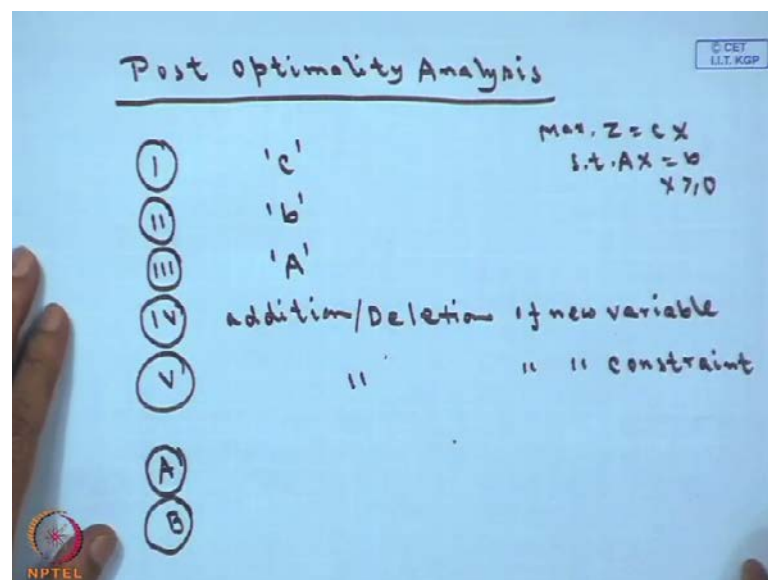 © CET
I.I.T. KGP
Post Optimality Analysis
Max. Z = c X
s.t. AX = b
X ≥ 0
I 'c'
II 'b'
III 'A'
IV addition/Deletion of new variable
V " " " constraint
A
B
NPTEL